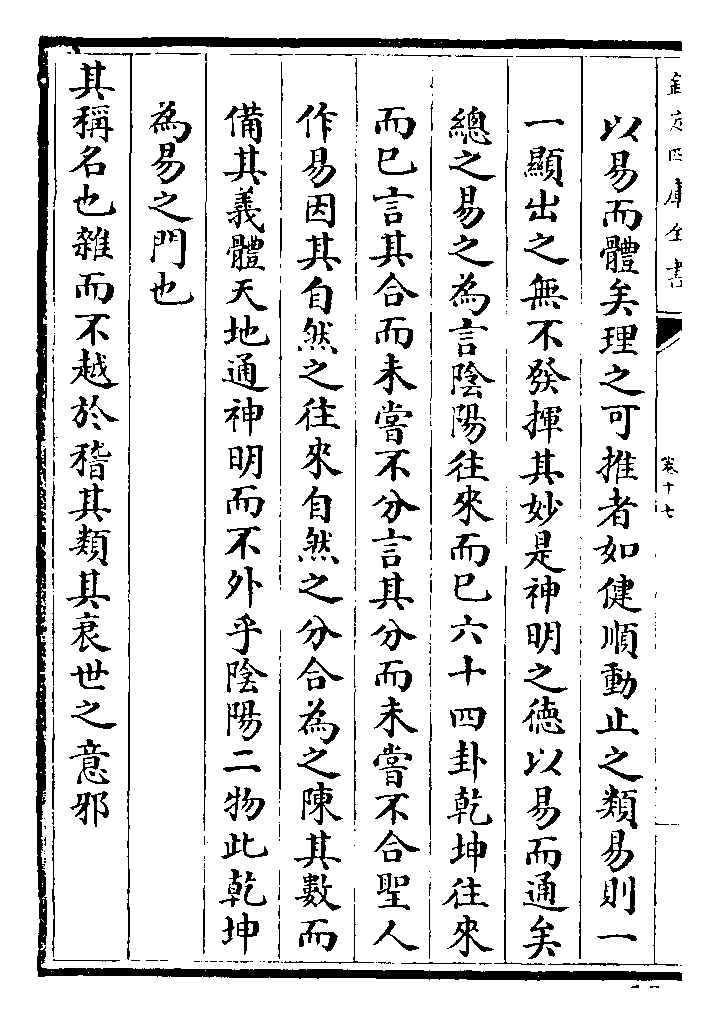 欽定四庫全書
卷十七
以易而體矣理之可推者如健順動止之類易則一
一顯出之無不發揮其妙是神明之德以易而通矣
總之易之為言陰陽往來而已六十四卦乾坤往來
而已言其合而未嘗不分言其分而未嘗不合聖人
作易因其自然之往來自然之分合為之陳其數而
備其義體天地通神明而不外乎陰陽二物此乾坤
為易之門也
其稱名也雜而不越於稽其類其衰世之意邪